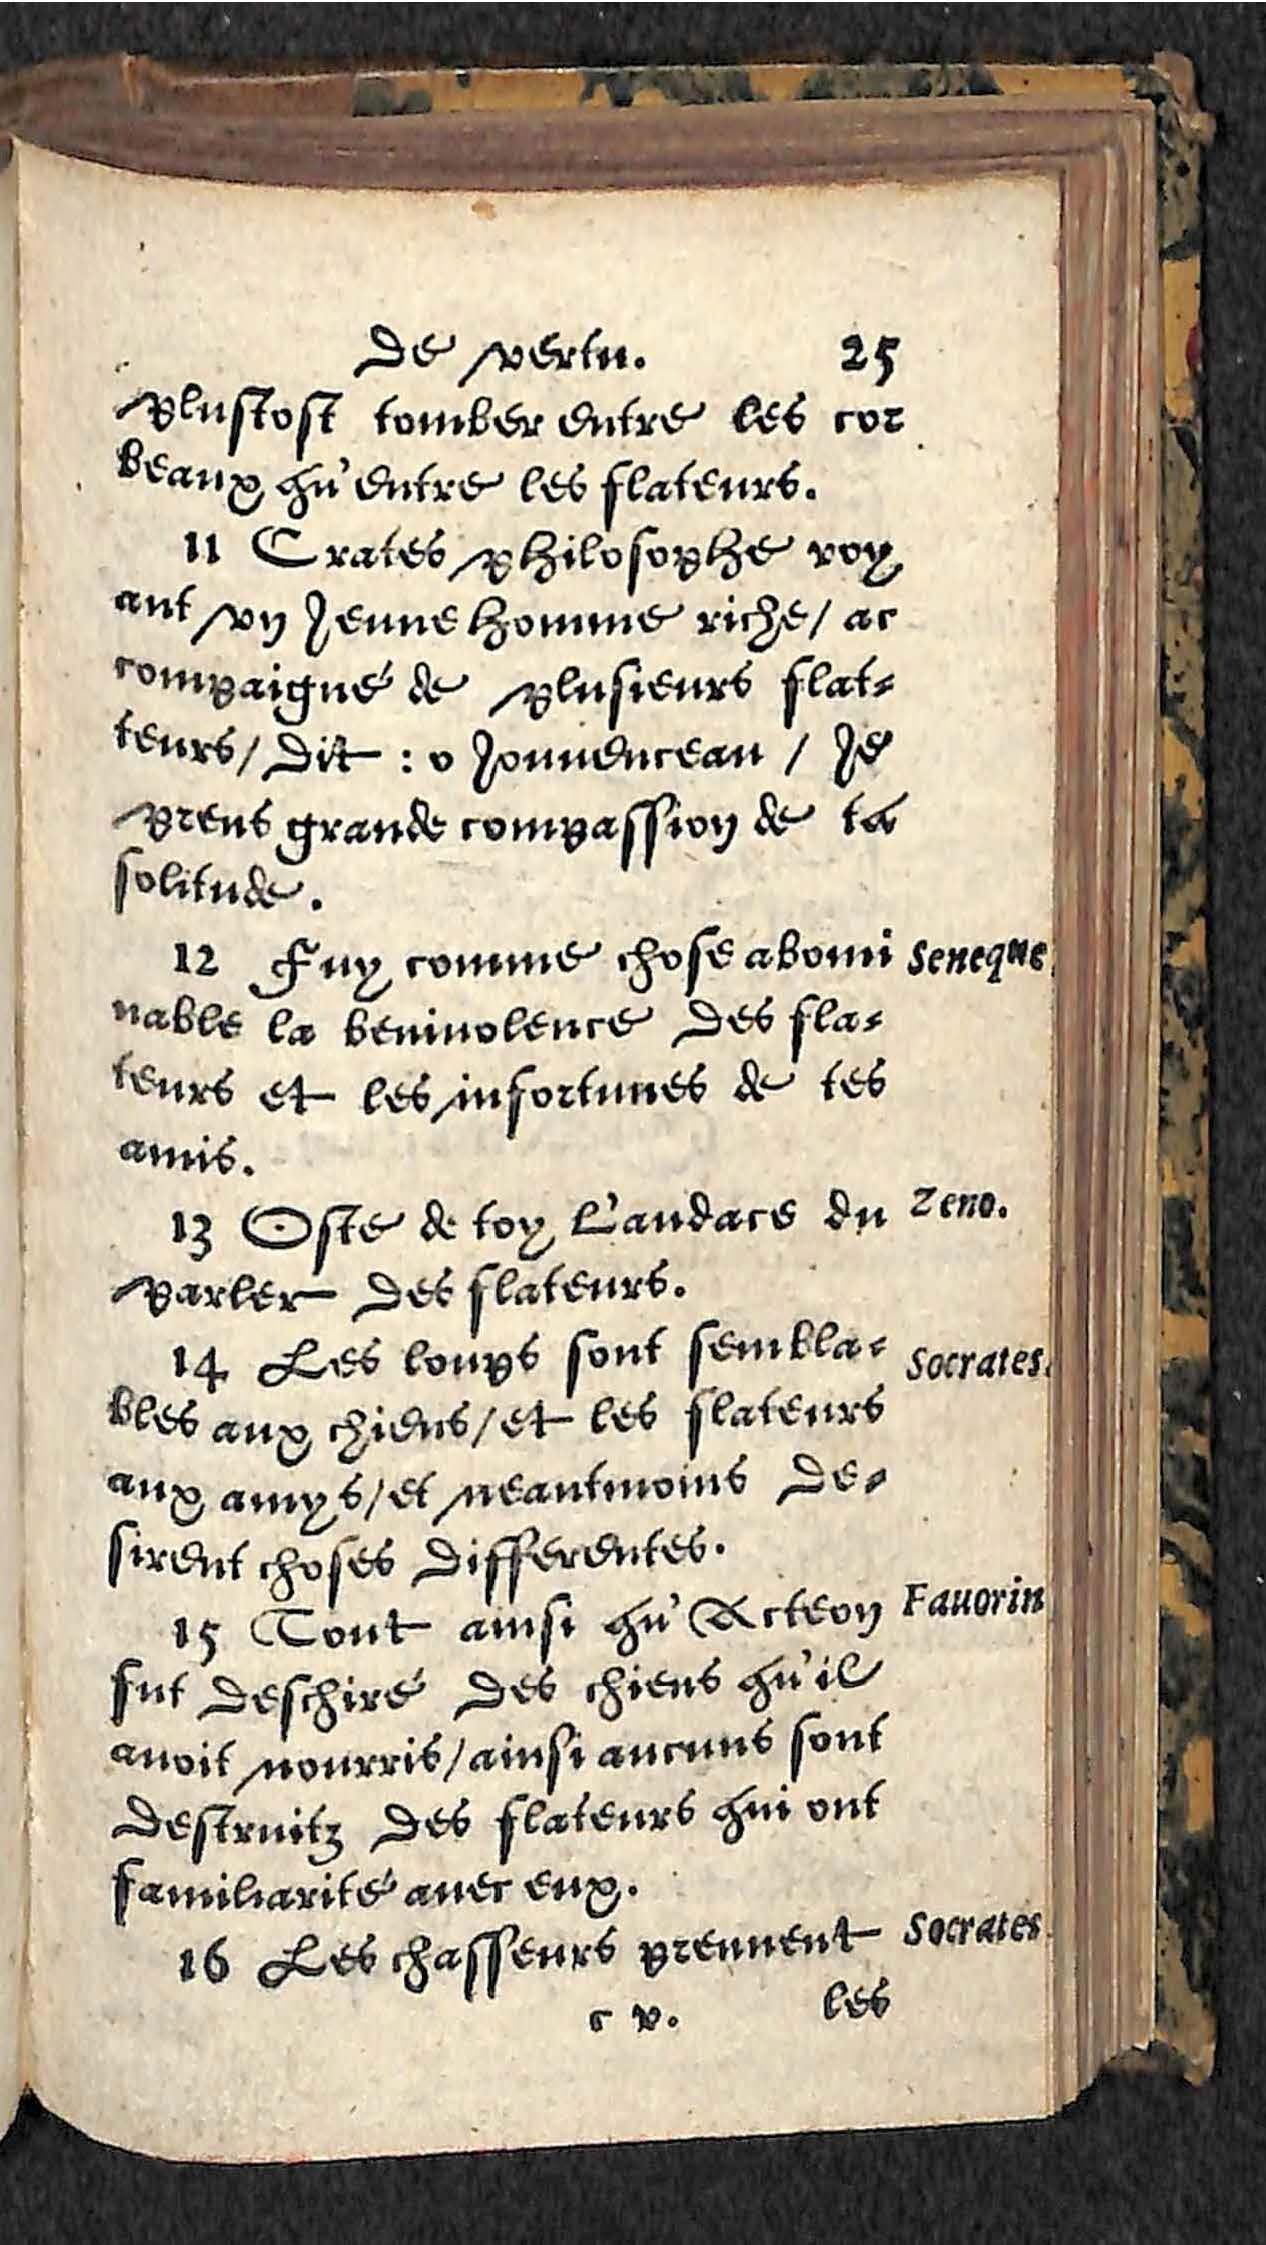 de vertu. 25
plustost tomber entre les cor
beaux qu'entre les flateurs.
11 Crates philosophe voy
ant vn Jeune homme riche/ ac
compaigné de plusieurs flat-
teurs/ dit : o Jouuenceau / Je
prens grande compassion de ta
solitude.
12 Fuy comme chose abomi Seneque.
nable la beniuolence des fla-
teurs et les infortunes de tes
amis.
13 Oste de toy L'audace du Zeno.
parler des flateurs.
14 Les loups sont sembla- Socrates.
bles aux chiens/ et les flateurs
aux amys/ et neantmoins de-
sirent choses differentes.
15 Tout ainsi qu'Acteon Fauorin
fut deschiré des chiens qu'il
auoit nourris/ ainsi aucuns sont
destruitz des flateurs qui ont
familiarité auec eux.
16 Les chasseurs prennent Socrates.
c v. les